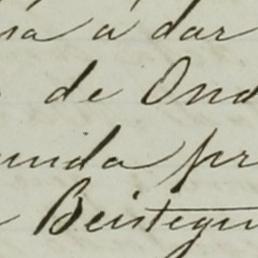 a dar
de Ond
unida pr
Beistegui